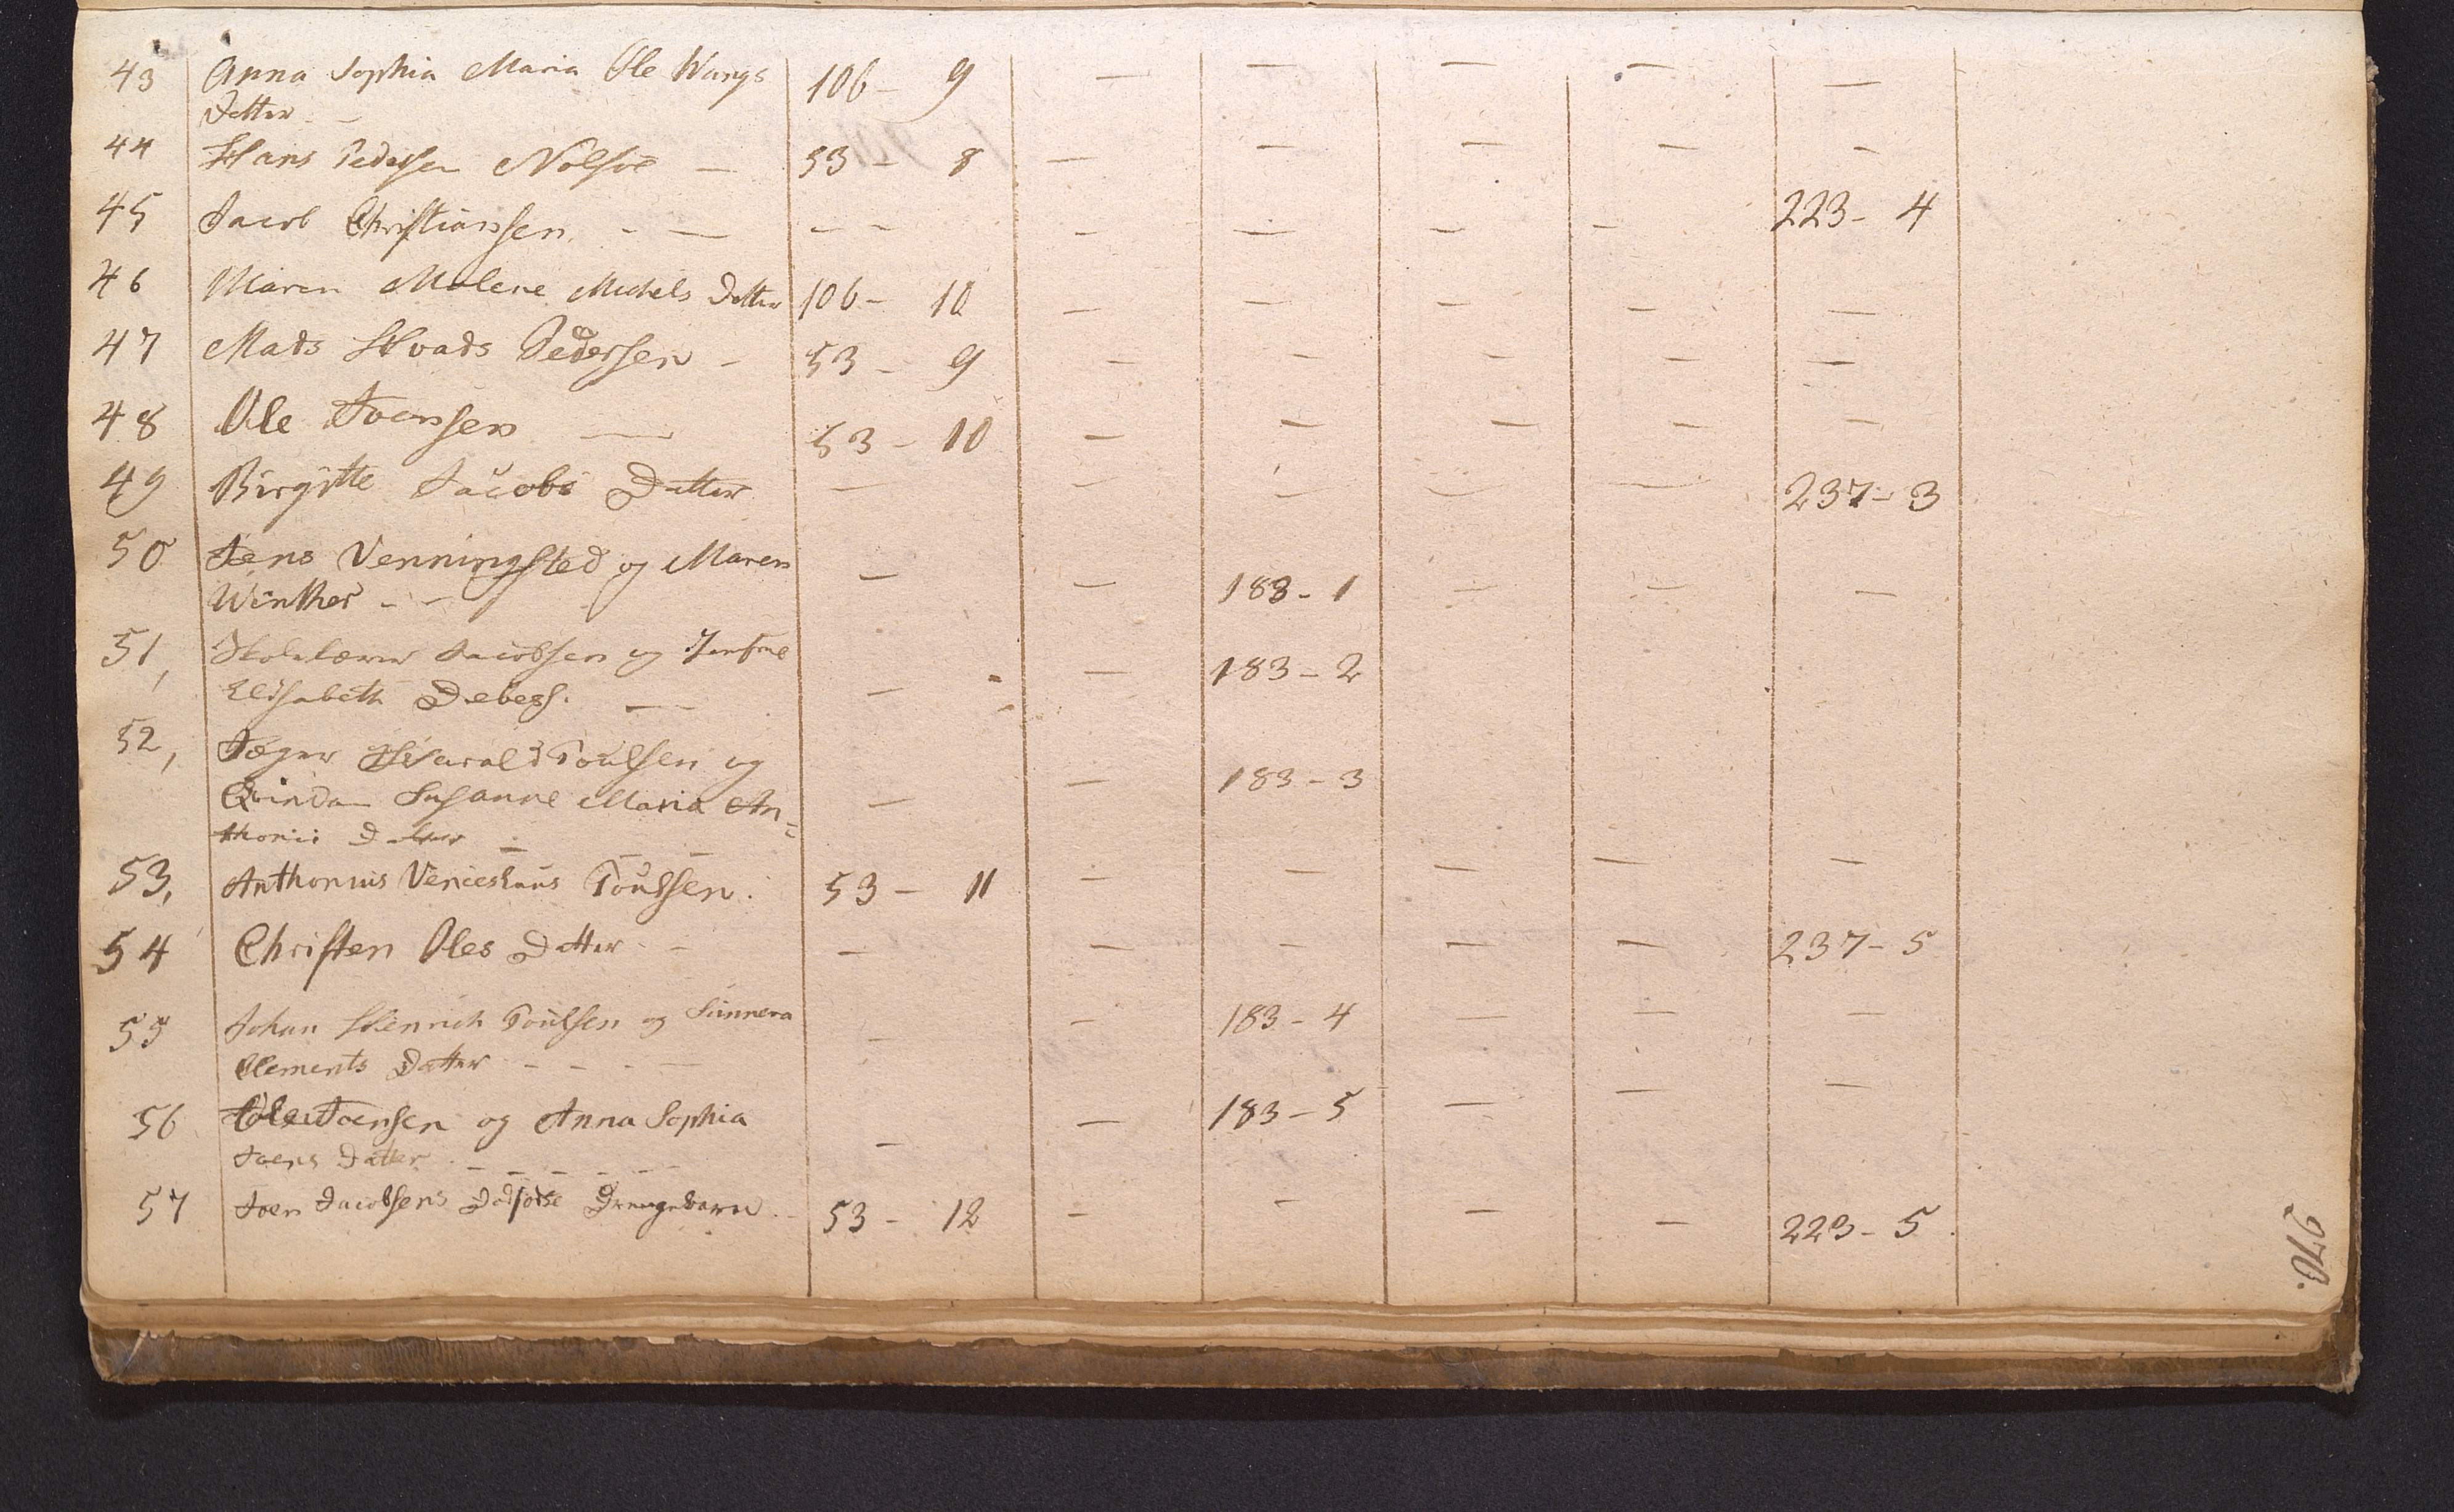 43 Anna Sophia Maria Ole Wangs 106 - 9 — — — — —
Datter -
44 Hans Pedersen Nolsöe — 53 - 8 — — — — —
45 Jacob Christiansen - — - - — — — - 223 - 4
46 Maren Malene Michels Datter 106 - 10 — — — — —
47 Mads Hvads Pedersen - 53 - 9 — — — — —
48 Ole Joensen — 53 - 10 — — — — —
49 Birgitte Jacobs Datter — — — — — 237 - 3
50 Jens Venningsted og Maren
Winther - - — — 183 - 1 — — —
51, Skolelærer Jacobsen og Jomfrue
Elisabeth Debess. — — — 183 - 2
52, Jæger Harald Poulsen og
Qvinden Susanne Maria An= — — 183 - 3
thonii Datter —
53, Anthonius Venceslaus Poulsen. 53 - 11 — — — — —
54 Christen Oles Datter - - — — — — — 237 - 5
55 Johan Henrich Poulsen og Sunneva — — 183 - 4 — — —
Clements Datter - - - —
56 Ole Joensen og Anna Sophia — — 183 - 5 — — —
Joens Datter - - - - - -
57 Joen Jacobsens Dødfødte Drengebarn - 53 - 12 — — — — 223 - 5
270.